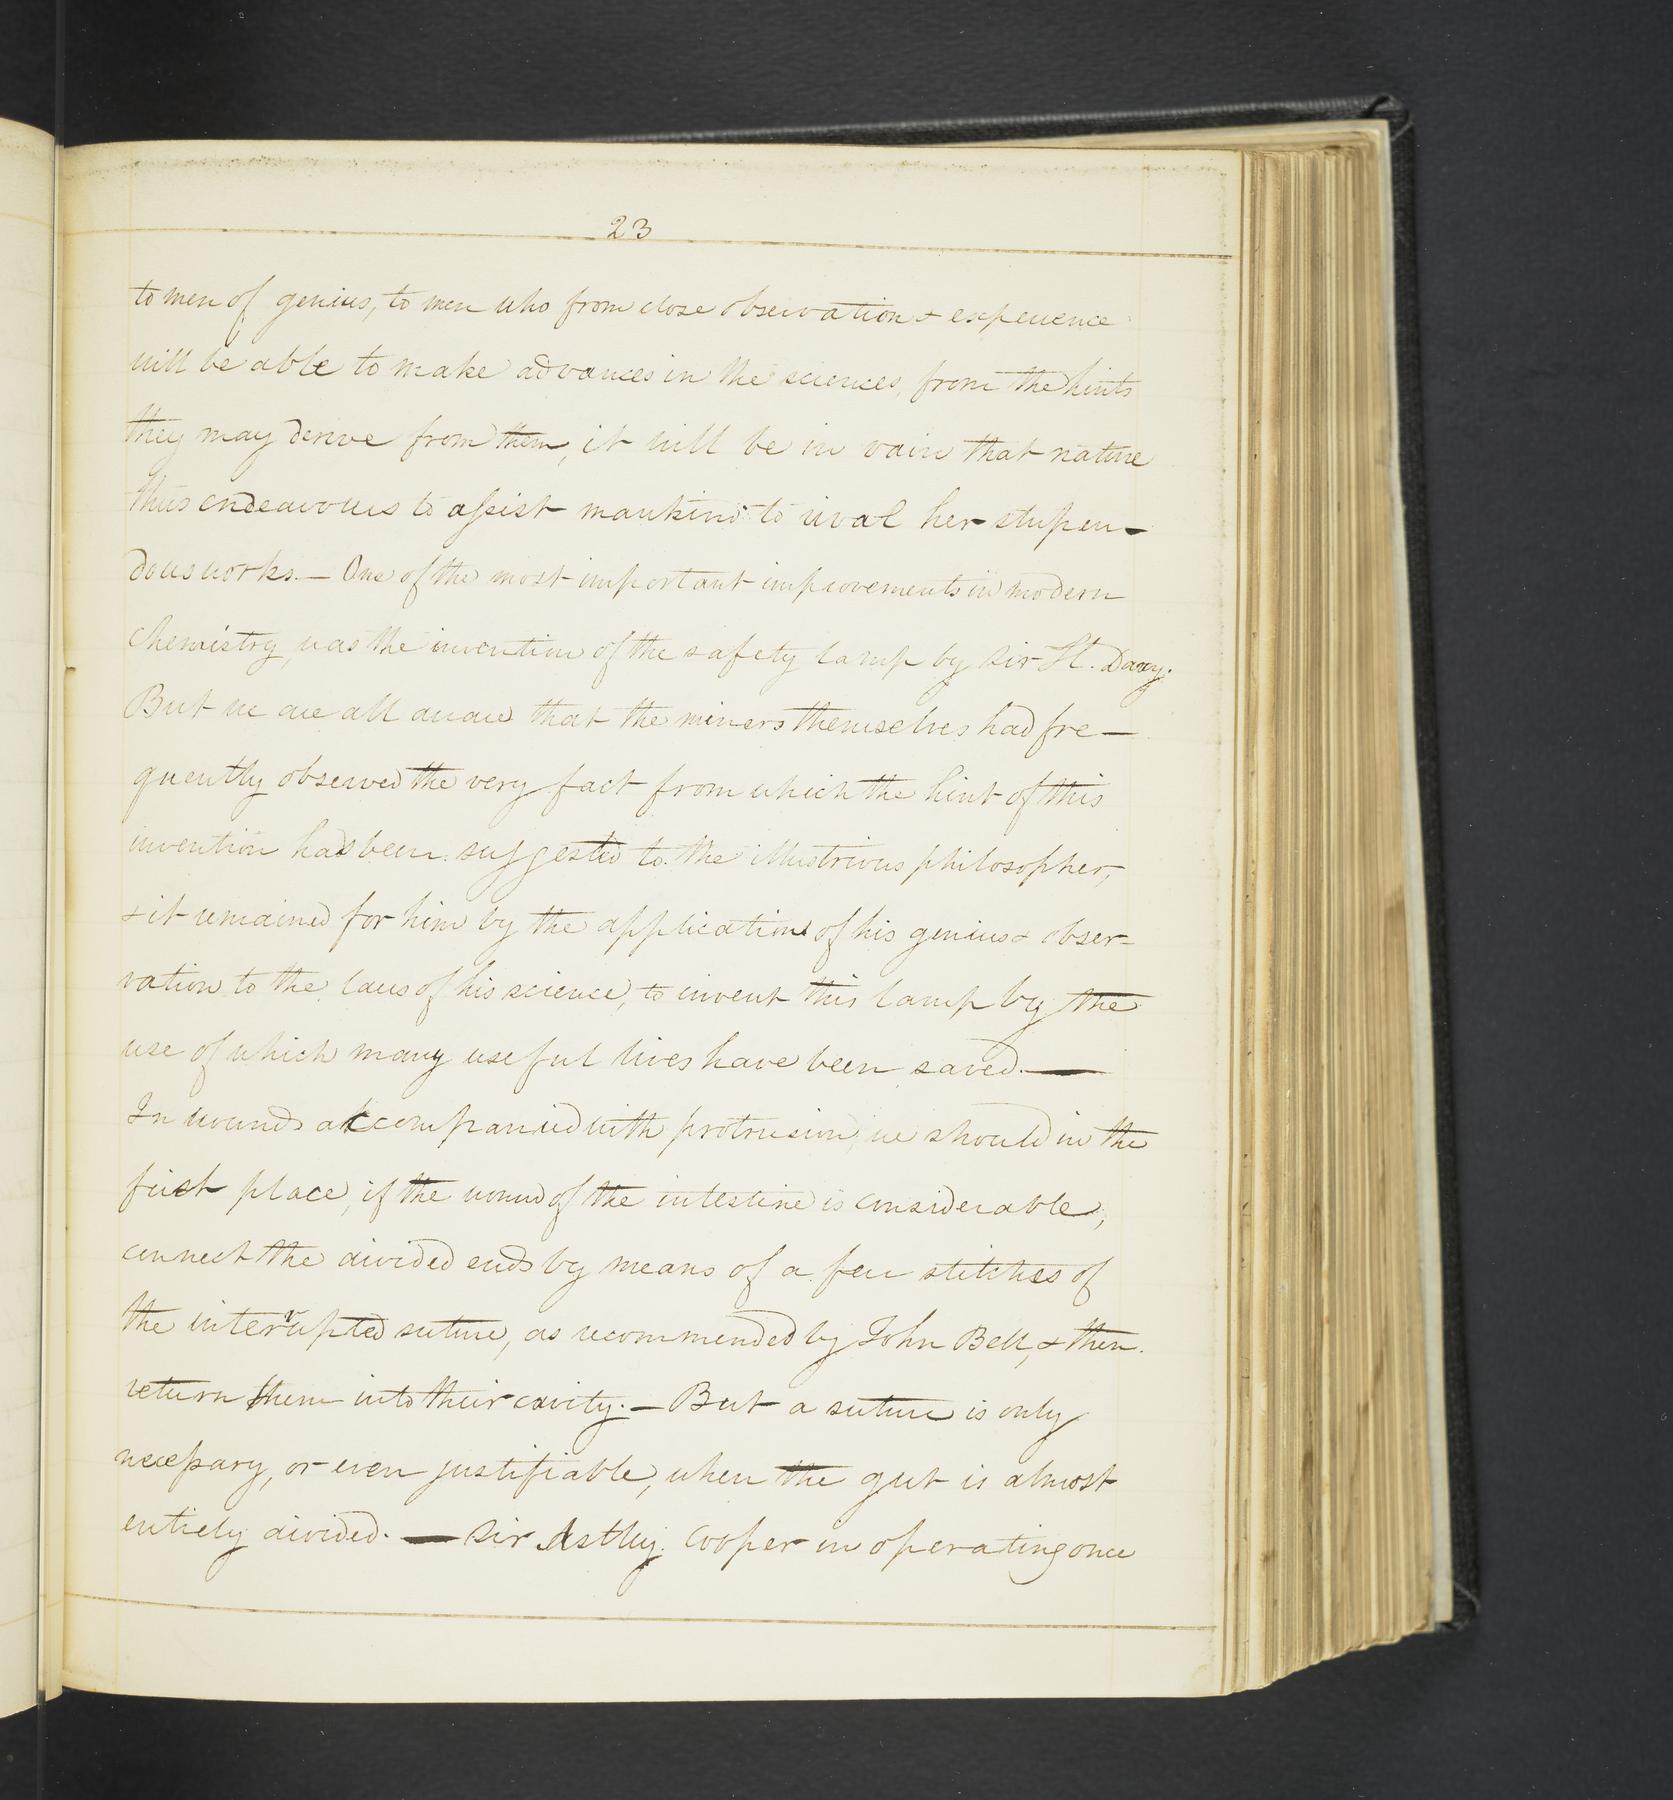 23
to men of genius, to men who from close observation & experience
will be able to make advances in the sciences, from the hints
they may derive from them, it will be in vain that nature
thus endeavours to assist mankind to rival her stupen-
dous works. — One of the most important improvements in modern
Chemistry, was the invention of the safety lamp by Sir H. Davy.
But we are all aware that the miners themselves had fre-
quently observed the very fact from which the hint of this
invention had been suggested to the illustrious philosopher,
& it remained for him by the application of his genius & obser-
vation to the laws of his science, to invent this lamp by the
use of which many useful lives have been saved. —
In wounds accompanied with protrusion, we should in the
first place, if the wound of the intestine is considerable,
connect the divided ends by means of a few stitches of
the interrupted suture, as recommended by John Bell, & then
return them into their cavity. — But a suture is only
necessary, or even justifiable, when the gut is almost
entirely divided. — Sir Astley Cooper in operating once